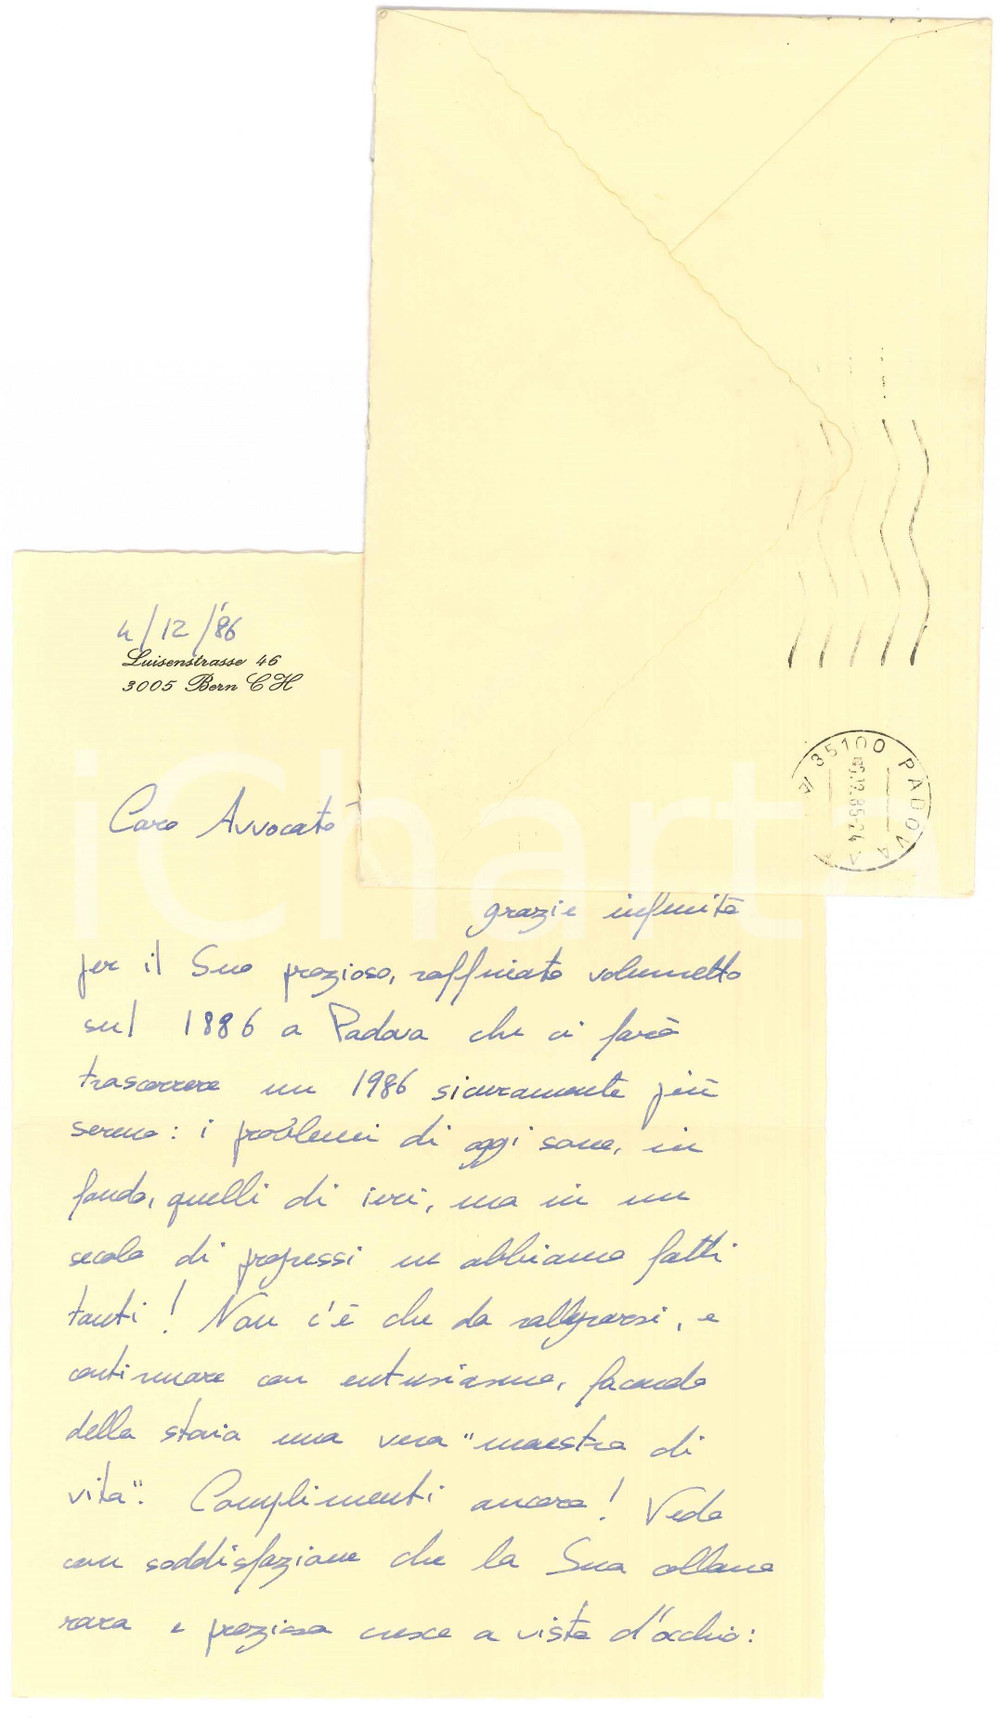 4/12/'86
Luisenstrasse 46
3005 Bern CH
35100 PADOVA
iCharta
Caro Avvocato
grazie infinite
per il Suo prezioso, raffinato volumetto
sul 1886 a Padova che ci farà
trascorrere un 1986 sicuramente più
sereno: i problemi di oggi sono, in
fondo, quelli di ieri, ma in un
secolo di progressi ne abbiamo fatti
tanti! Non c'è che da rallegrarsi, e
continuare con entusiasmo, facendo
della storia una vera "maestra di
vita". Complimenti ancora! Vedo
con soddisfazione che la Sua collana
rara e preziosa cresce a vista d'occhio: